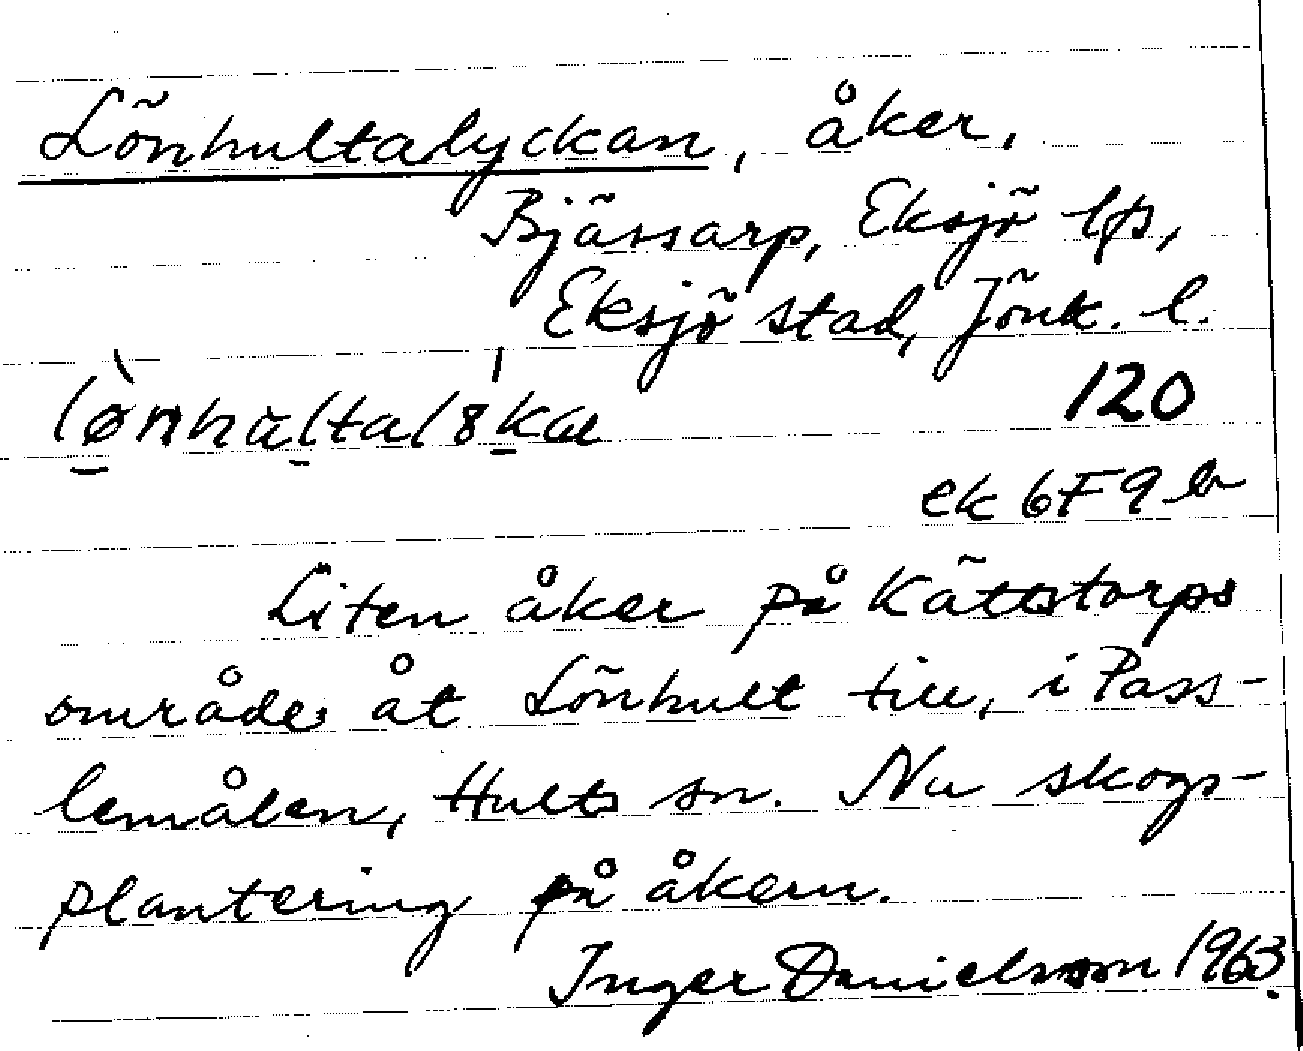 Lönhultalyckan, åker,
Bjässarp, Eksjö lfs,
Eksjö stad, Jönk. l.
120
ek 6F9b
Liten åker på Kättstorps
område, åt Lönhult till, i Pass-
lemålen, Hults sn. Nu skogs-
plantering på åkern.
Inger Danielsson 1963.